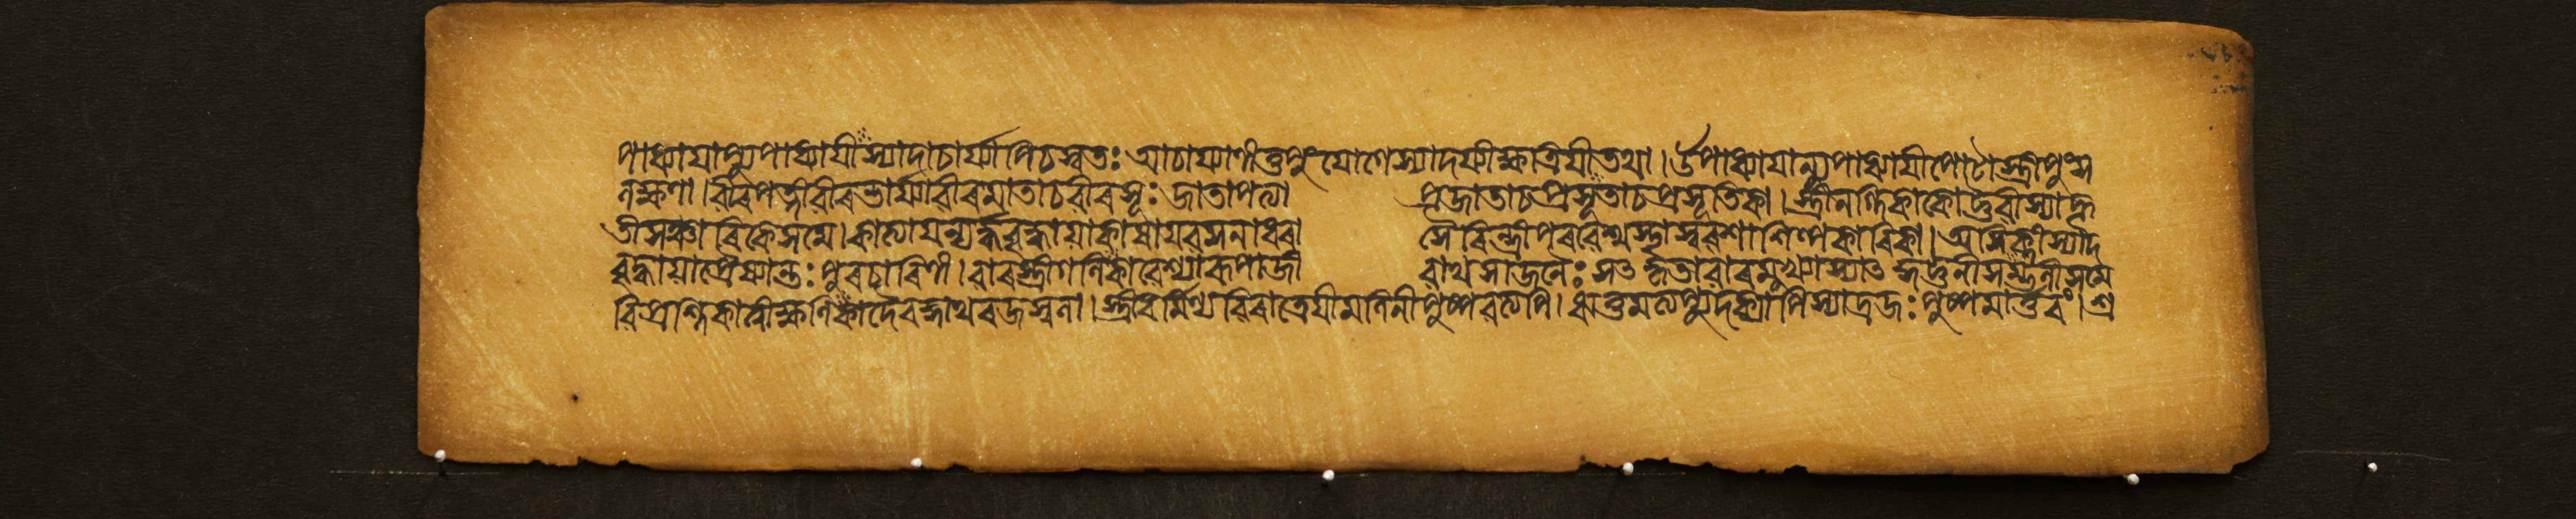 পাধ্যাযাপ্যুপাধ্যাযীস্যাদাচাৰ্য্যাপিচস্বতঃ আচাৰ্য্যাণীতুপুংযোগেস্যাদৰ্য্যীক্ষত্ৰিযীতথা। উপাধ্যাযান্যুপাধ্যাযীপোটাস্ত্ৰীপুংস
লক্ষণা। বীৰপত্নীবীৰভাৰ্য্যাবীৰমাতাচবীৰসূঃ জাতাপত্যা প্ৰজাতাচপ্ৰসূতাচপ্ৰসূতিকা। স্ত্ৰীনগ্নিকাকোট্টবীস্যাদ্দূ
তীসঞ্চাৰিকেসমে। কাত্যাযন্যৰ্দ্ধবৃদ্ধাযাকাষাযবসনাধবা সৈৰিন্ধ্ৰীপৰবেশ্মস্থাস্ববশাশিল্পকাৰিকা। অসিক্নীস্যাদ
বৃদ্ধাযাপ্ৰৈষ্যান্তঃপুৰচাৰিণী। বাৰস্ত্ৰীগণিকাবেশ্যাৰূপাজী বাথসাজনৈঃ সৎকৃতাবাৰমুখ্যাস্যাৎকুট্টনীসম্ভলীসমে
বিপ্ৰশ্নিকাত্বীক্ষণিকাদৈবজ্ঞাথৰজস্বলা। স্ত্ৰীধৰ্মিণ্যবিৰাত্ৰেযীমলিনীপুষ্পবত্যপি। ঋতুমত্যপ্যুদক্যাপিস্যাদ্ৰজঃ পুষ্পমাৰ্ত্তবং। শ্ৰ